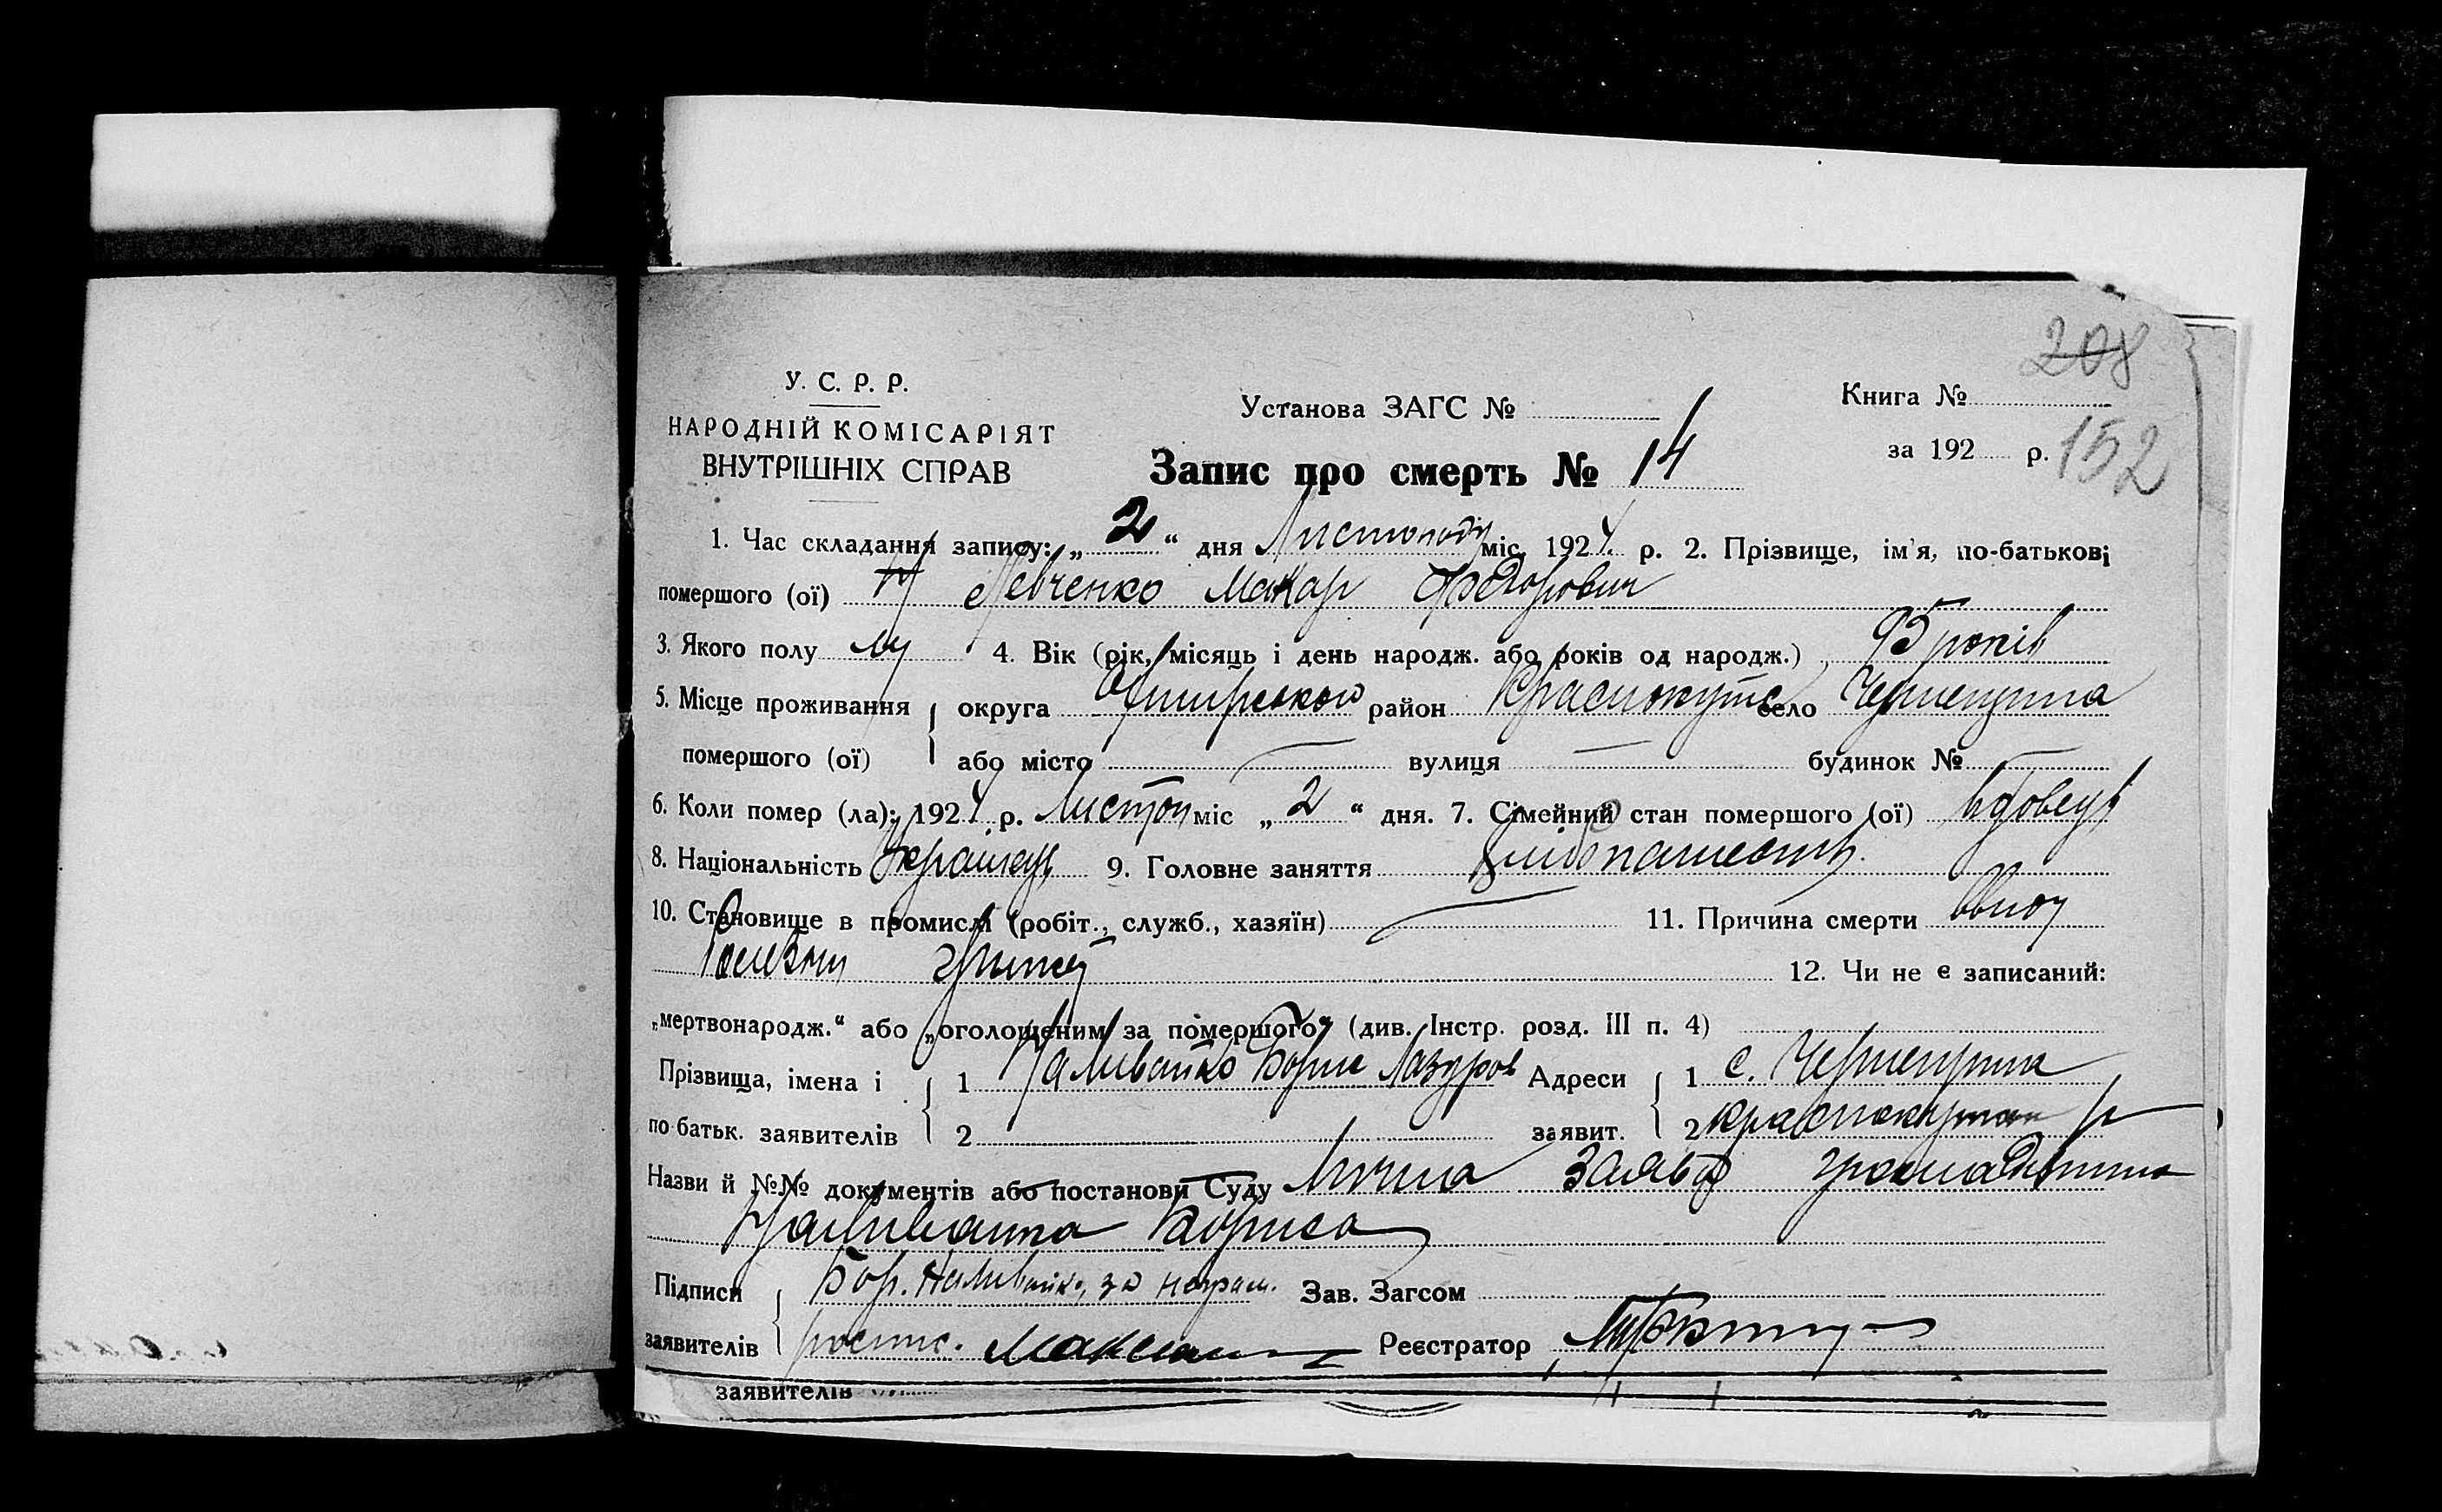 208
У. С. Р. Р.
НАРОДНІЙ КОМІСАРІЯТ
ВНУТРІШНІХ СПРАВ
Установа ЗАГС №
Книга №
за 192 р.
152
Запис про смерть № 14
1. Час складання запису: „ 2 “ дня Листопаду міс. 1924. р. 2. Прізвище, ім'я, по-батькові
помершого (ої) Левченко Макар Федорович
3. Якого полу м 4. Вік (рік, місяць і день народж. або років од народж.) 95 років
5. Місце проживання округа район Краснокутс село
помершого (ої) або місто — вулиця — будинок № —
6. Коли помер (ла): 1924 р. Листоп міс „ 2 “ дня. 7. Сімейний стан помершого (ої) вдовець
8. Національність Українець 9. Головне заняття
10. Становище в промислі (робіт., служб., хазяїн) — 11. Причина смерти
12. Чи не є записаний:
„мертвонародж.“ або „оголошеним за помершого“ (див. Інстр. розд. III п. 4)
Прізвища, імена і 1 Наливайко Борис Адреси 1 с.
по батьк. заявителів 2 заявит. 2
Назви й №№ документів або постанови Суду заява громадянина
Наливайка Бориса
Підписи Бор. Наливайко, за неграм. Зав. Загсом
заявителів роспис. Реєстратор
заявителів